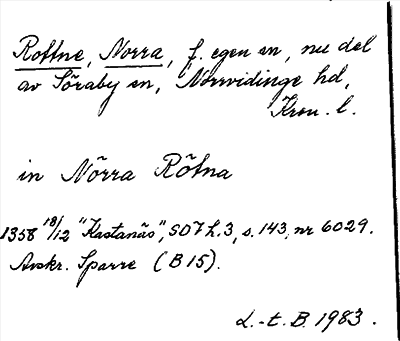 Rottne, Norra, f. egen sn, nu del
av Söraby sn, Norrvidinge hd,
Kron. l.
in Nörra Rötna
1358 18/12 "Kastanäs", SD 7 h. 3, s. 143, nr 6029.
Avskr. Sparre (B 15).
L.-t. B. 1983.